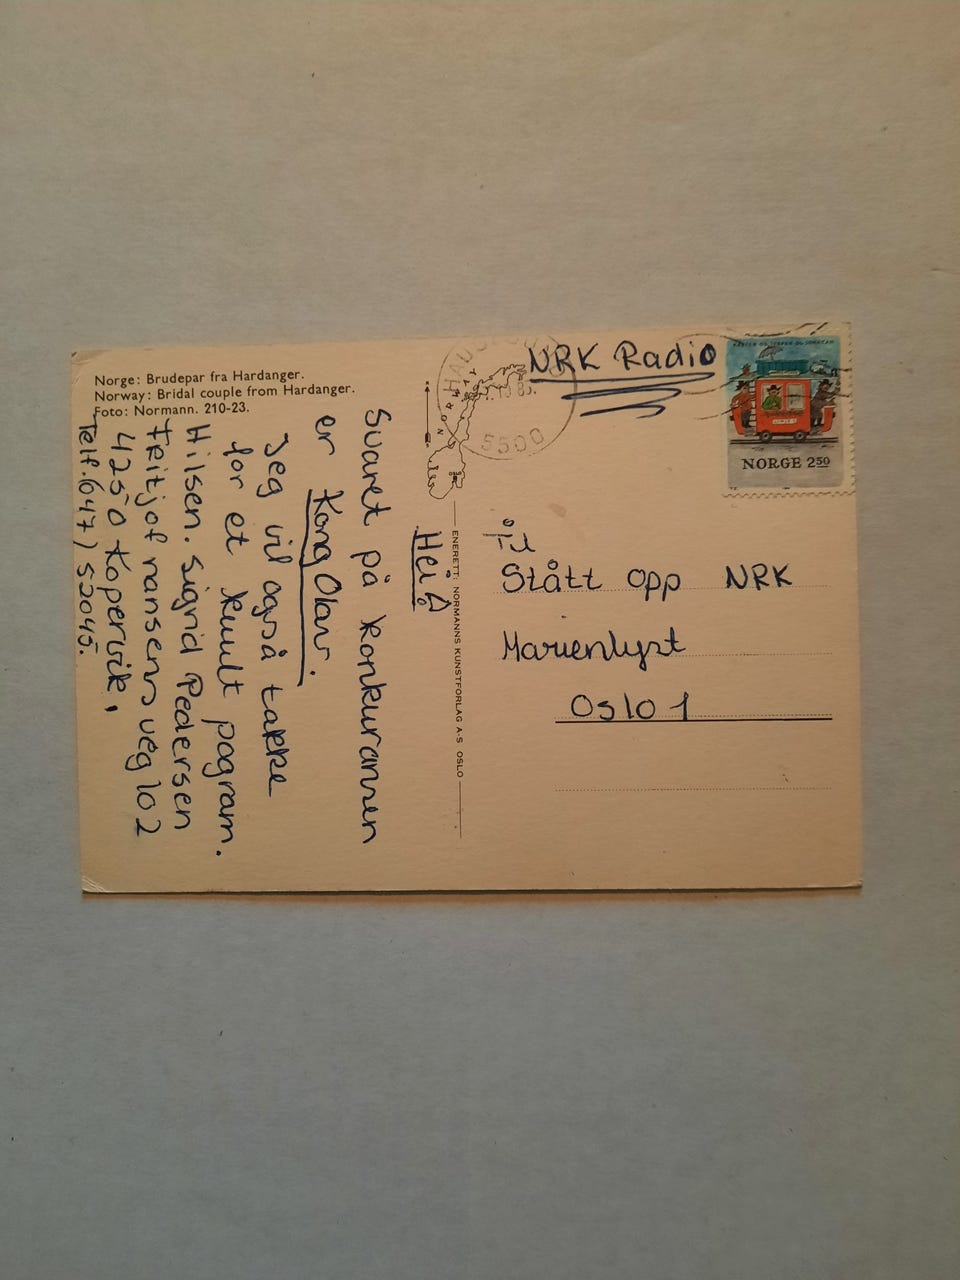 Norge: Brudepar fra Hardanger.
Norway: Bridal couple from Hardanger.
Foto: Normann. 210-23.
Hei!
Svaret på konkuransen
er Kong Olav.
Jeg vil også takke
for et kult pogram.
Hilsen. Sigrid Pedersen
Fritjof nansens veg 102
4250 Kopervik,
Telf. (047) 52045.
ENERETT: NORMANNS KUNSTFORLAG A-S OSLO
NRK Radio
5500
NORGE 250
Til
Stått opp NRK
Marienlyst
Oslo 1